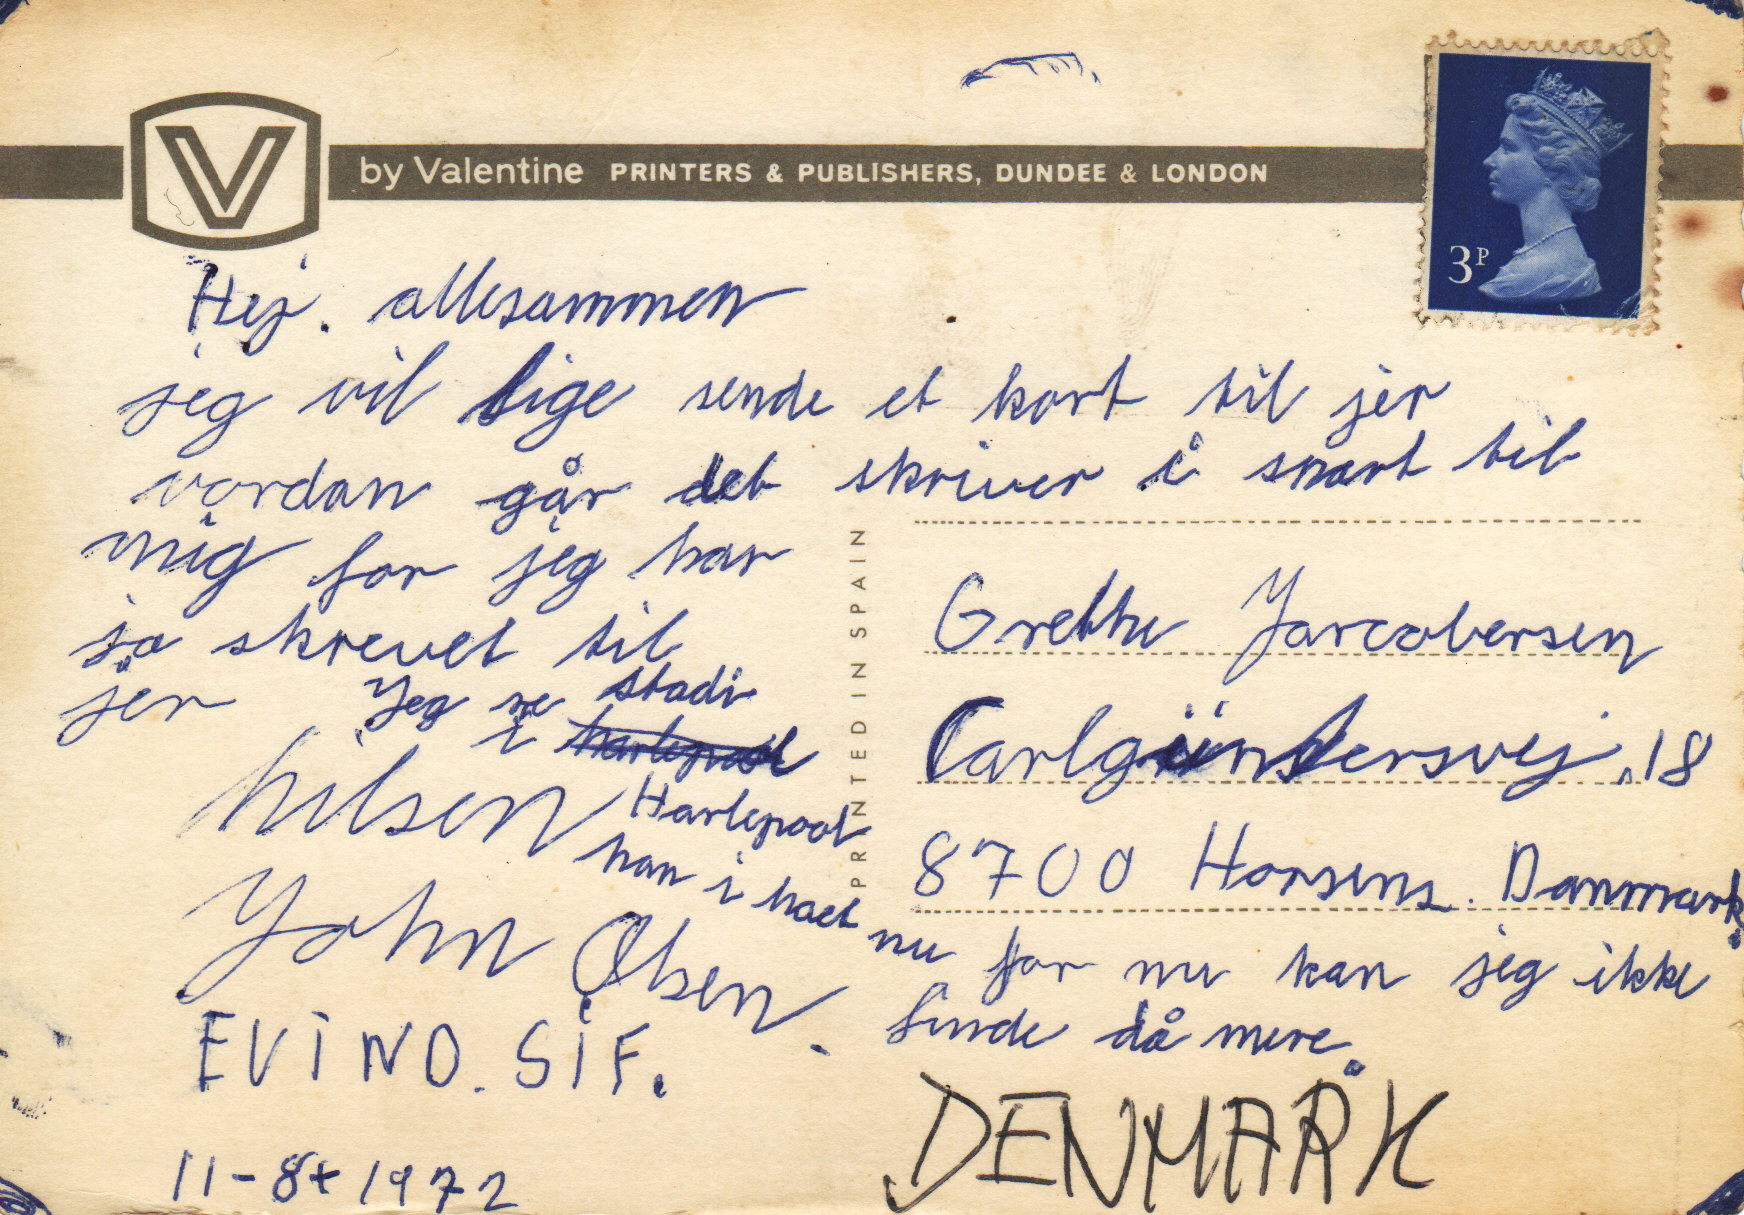 V by Valentine PRINTERS & PUBLISHERS, DUNDEE & LONDON
3P
Hej. allesammen
jeg vil lige sende et kort til jer
vordan går det skriver i snart til
mig for jeg har
jo skrevet til
jer Jeg se stadi
i harlepool
Harlepool
han i haet
nu for nu kan jeg ikke
finde då mere.
hilsen
John Olsen.
EVIND. SIF.
11-8+1972
PRINTED IN SPAIN
Grethe Jarcobersen
Carlgündersvej. 18
8700 Horsens. Danmark.
DENMARK